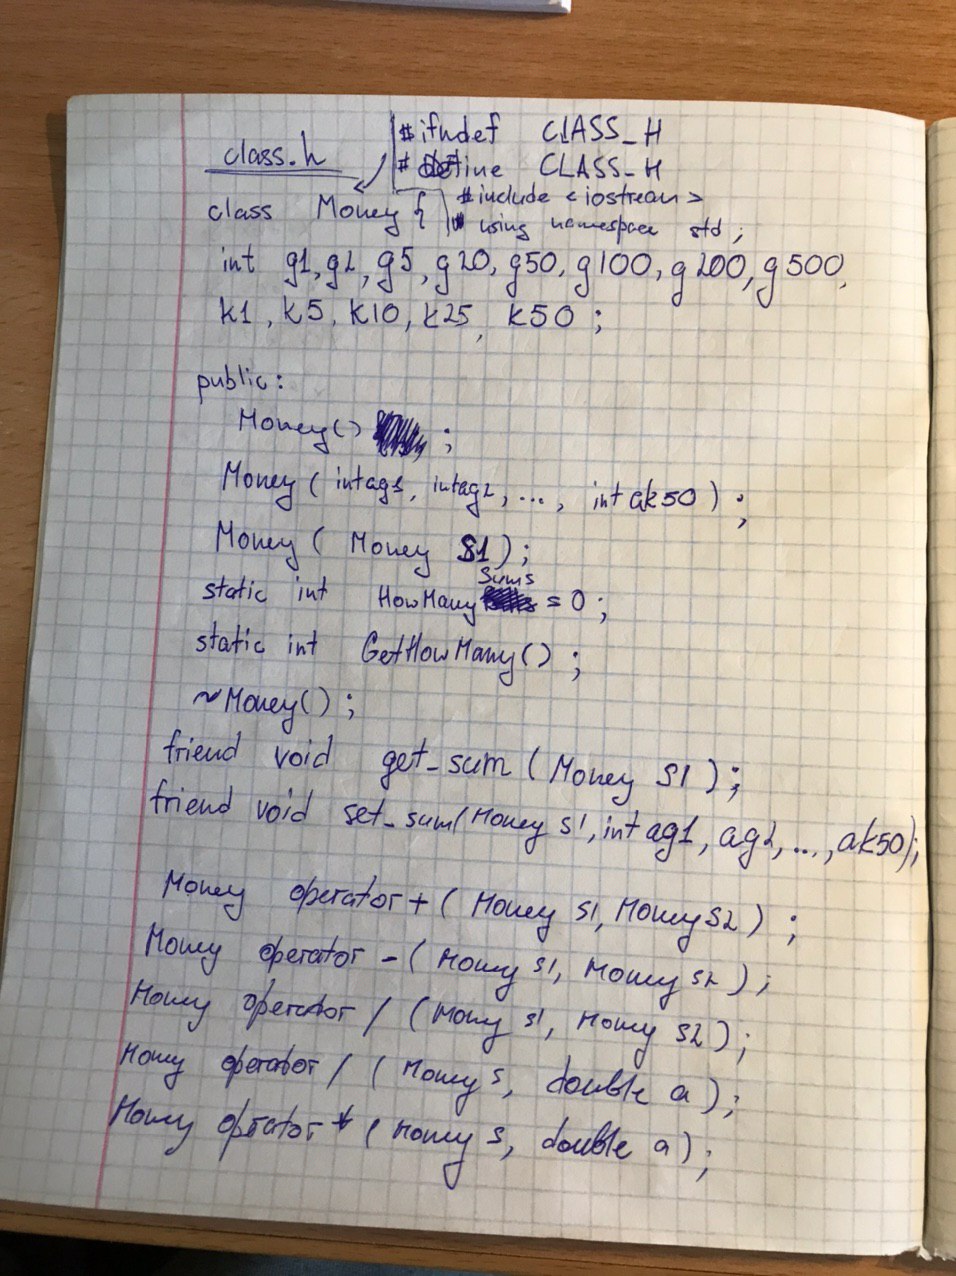 #ifndef CLASS_H
#define CLASS_H
#include <iostream>
using namespace std;
class.h
class Money {
int g1, g2, g5, g20, g50, g100, g200, g500,
k1, k5, k10, k25, k50;
public:
Money() ;
Money (int ag1, int ag2, ..., int ak50);
Money ( Money S1);
static int HowManySums = 0;
static int GetHowMany();
~Money();
friend void get_sum (Money S1);
friend void set_sum(Money s1, int ag1, ag2, ..., ak50);
Money operator+ (Money s1, Money s2);
Money operator - (Money s1, Money s2);
Money operator / (Money s1, Money s2);
Money operator / (Money s, double a);
Money operator * (Money s, double a);